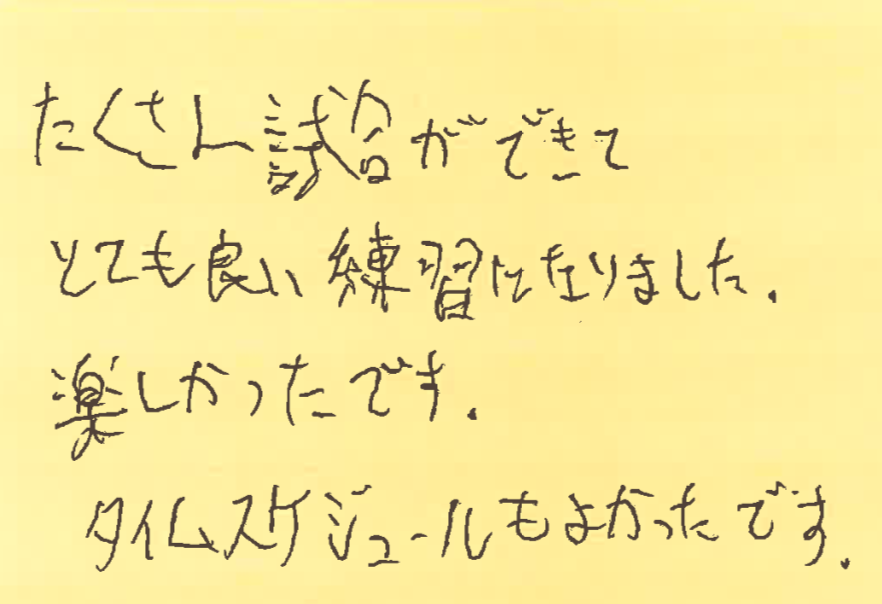 たくさん試合ができて
とても良い練習になりました.
楽しかったです.
タイムスケジュールもよかったです.